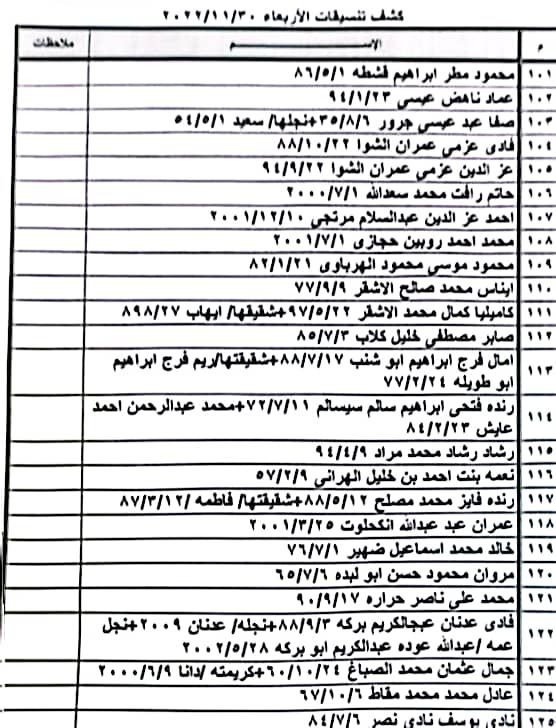 كشف تنسيقات الأربعاء ٢٠٢٢/١١/٣٠
م الاســـــــم ملاحظات
١٠١ محمود مطر ابراهيم قشطه ٨٦/٥/١
١٠٢ عماد ناهض عيسى ٩٤/١/٢٣
١٠٣ صفا عبد عيسى جرور ٣٥/٨/٦+نجلها/ سعيد ٥٤/٥/١
١٠٤ فادى عزمي عمران الشوا ٨٨/١٠/٢٢
١٠٥ عز الدين عزمى عمران الشوا ٩٤/٩/٢٢
١٠٦ حاتم رافت محمد سعدالله ٢٠٠٠/٧/١
١٠٧ احمد عز الدين عبدالسلام مرتجي ٢٠٠١/١٢/١٠
١٠٨ محمد احمد روبين حجازى ٢٠٠١/٧/١
١٠٩ محمود موسى محمود الهرباوى ٨٢/١/٢١
١١٠ ايناس محمد صالح الاشقر ٧٧/٩/٩
١١١ كاميليا كمال محمد الاشقر ٩٧/٥/٢٢+شقيقها/ ايهاب ٨٩٨/٢٧
١١٢ صابر مصطفي خليل كلاب ٨٥/٧/٣
١١٣ امال فرج ابراهيم ابو شنب ٨٨/٧/١٧+شقيقتها/ريم فرج ابراهيم
ابو طويله ٧٧/٢/٢٤
١١٤ رنده فتحى ابراهيم سالم سيسالم ٧٢/٧/١١+محمد عبدالرحمن احمد
عايش ٨٤/٢/٢٣
١١٥ رشاد رشاد محمد مراد ٩٤/٤/٩
١١٦ نعمه بنت احمد بن خليل الهرانى ٥٧/٢/٩
١١٧ رنده فايز محمد مصلح ٨٨/٥/١٢+شقيقتها/ فاطمه /٨٧/٣/١٢
١١٨ عمران عبد عبدالله انكحلوت ٢٠٠١/٣/٢٥
١١٩ خالد محمد اسماعيل ضهير ٧٦/٧/١
١٢٠ مروان محمود حسن ابو لبده ٦٥/٧/٦
١٢١ محمد على ناصر حراره ٩٠/٩/١٧
١٢٢ فادى عدنان عبجالكريم بركه ٨٨/٩/٣+نجله/ عدنان ٢٠٠٩+نجل
عمه /عبدالله عوده عبدالكريم ابو بركه ٢٠٠٢/٥/٢٨
١٢٣ جمال عثمان محمد الصباغ ٦٠/١٠/٢٤+كريمته /دانا ٢٠٠٠/٦/٩
١٢٤ عادل محمد محمد مقاط ٦٧/١٠/٦
١٢٥ نادى يوسف نادى نصر ٨٤/٧/٦